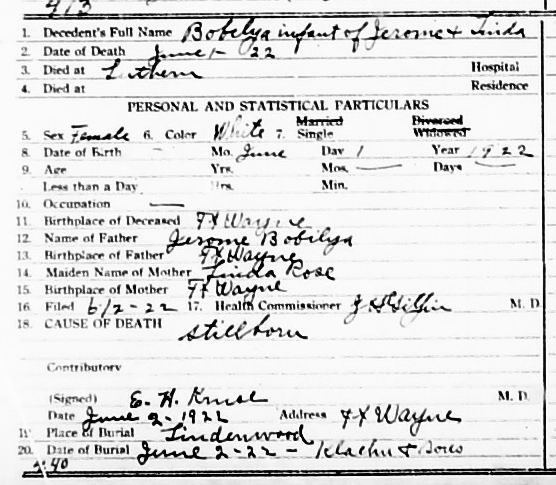 413
1. Decedent's Full Name Bobelya infant of Jerome & Linda
2. Date of Death June 1 - 22
3. Died at Lutheran Hospital
4. Died at Residence
PERSONAL AND STATISTICAL PARTICULARS
5. Sex Female 6. Color White 7. Married Single Divorced Widowed
8. Date of Birth - Mo. June Day 1 Year 1922
9. Age Yrs. Mos. — Days —
Less than a Day Hrs. Min.
10. Occupation —
11. Birthplace of Deceased Ft Wayne
12. Name of Father Jerome Bobilya
13. Birthplace of Father Ft Wayne
14. Maiden Name of Mother Linda Rose
15. Birthplace of Mother Ft Wayne
16. Filed 6/2-22 17. Health Commissioner M. D.
18. CAUSE OF DEATH stillborn
Contributory
(Signed) E. H. Kruse M. D.
Date June 2 - 1922 Address Ft Wayne
19. Place of Burial Lindenwood
20. Date of Burial June 2-22 - Klaehn & Sons